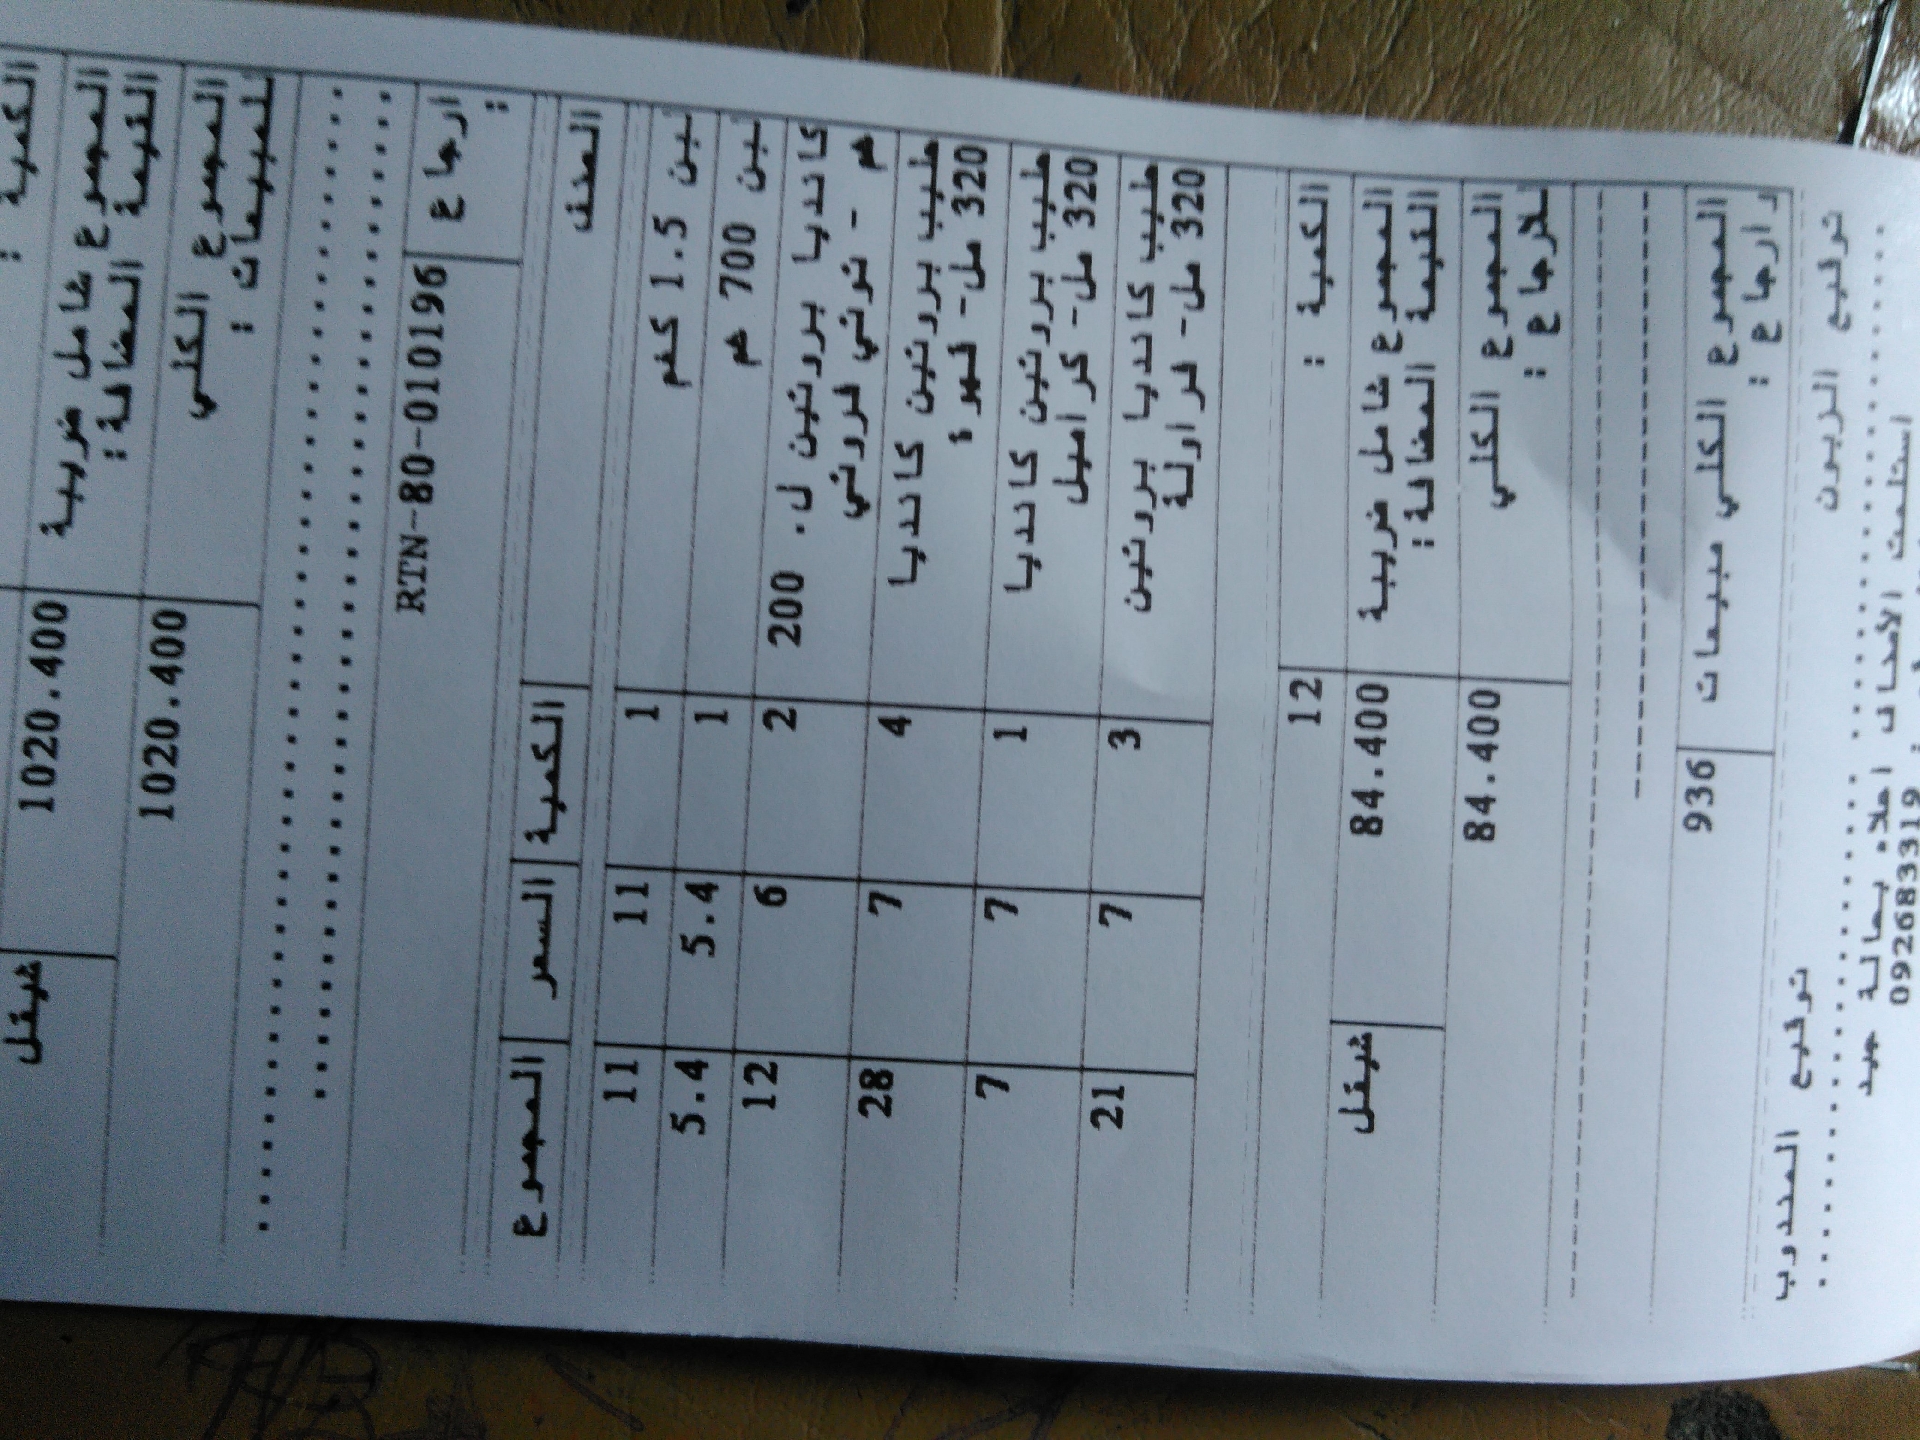 الكمية :
المجموع شامل ضريبة القيمة المضافة: 1020.400 شيقل
المجموع الكلي للمبيعات : 1020.400
ارجاع : RTN-80-010196
الصنف الكمية السعر المجموع
لبن 1.5 كغم 1 11 11
لبن 700 غم 1 5.4 5.4
كانديا بروتين ل. 200 غم - توتي فروتي 2 6 12
حليب بروتين كانديا 320 مل- قهوة 4 7 28
حليب بروتين كانديا 320 مل- كراميل 1 7 7
حليب كانديا بروتين 320 مل- فراولة 3 7 21
الكمية : 12
المجموع شامل ضريبة القيمة المضافة: 84.400 شيقل
المجموع الكلي للارجاع : 84.400
المجموع الكلي مبيعات وارجاع : 936
توقيع الزبون توقيع المندوب
استلمت الأصناف اعلاه بحالة جيد
092683319